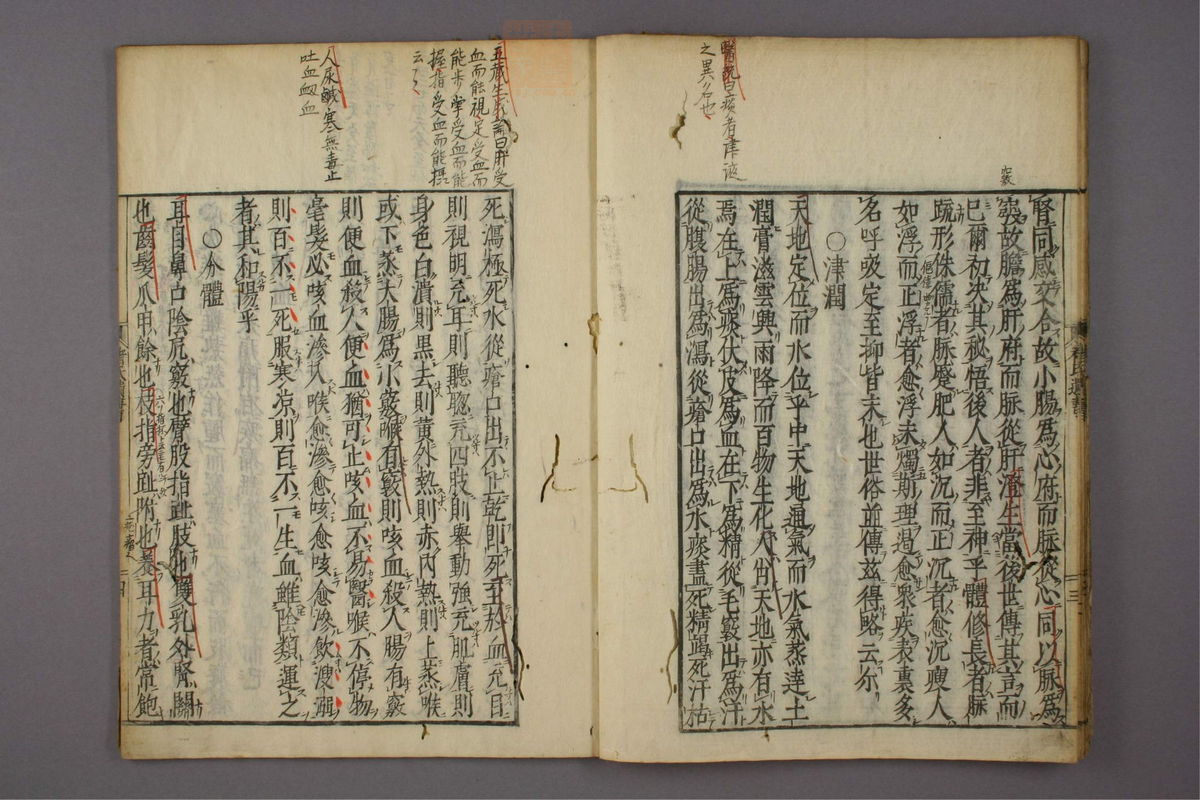 醫説曰痰者津液
之異名也
腎同感交合故小腸爲心府而脉從心同以脉爲
故膽爲肝府而脉從肝澄生當後世傳其言而
巳爾初決其秘悟後人者非至神乎體修長者脉
疏形侏儒者脉蹙肥人如沉而正沉者愈沉瘦人
如浮而正浮者愈浮未燭斯理遏愈衆疾表裏多
名呼吸定至抑皆未也世俗並傳兹得略云尔
○津潤
天地定位而水位乎中天地通氣而水氣蒸達土
潤膏滋雲興雨降而百物生化人肖天地亦有水
焉在上爲痰伏皮爲血在下爲精從毛竅出爲汗
從腹腸出爲瀉從瘡口出爲水痰盡死精竭死汗枯
五藏生成論曰肝受
血而能視足受血而
能步掌受血而能
握指受血而能攝
云々
人尿鹹寒無毒止
吐血衂血
死瀉極死水從瘡口出不止乾即死至於血充目
則視明充耳則聽聦充四肢則舉動強充肌膚則
身色白漬則黒去則黄外熱則赤内熱則上蒸喉
或下蒸大腸爲小竅喉有竅則咳血殺人腸有竅
則便血殺人便血猶可止咳血不易醫喉不停物
毫髮必咳血滲入喉愈滲愈咳愈咳愈滲飲溲溺
則百不一死服寒凉則百不一生血雖陰類運之
者其和陽乎
○分體
耳目鼻口陰尻竅也臂股指趾肢也雙乳外腎關
也齒髮爪甲餘也枝指旁趾附也養耳力者常飽